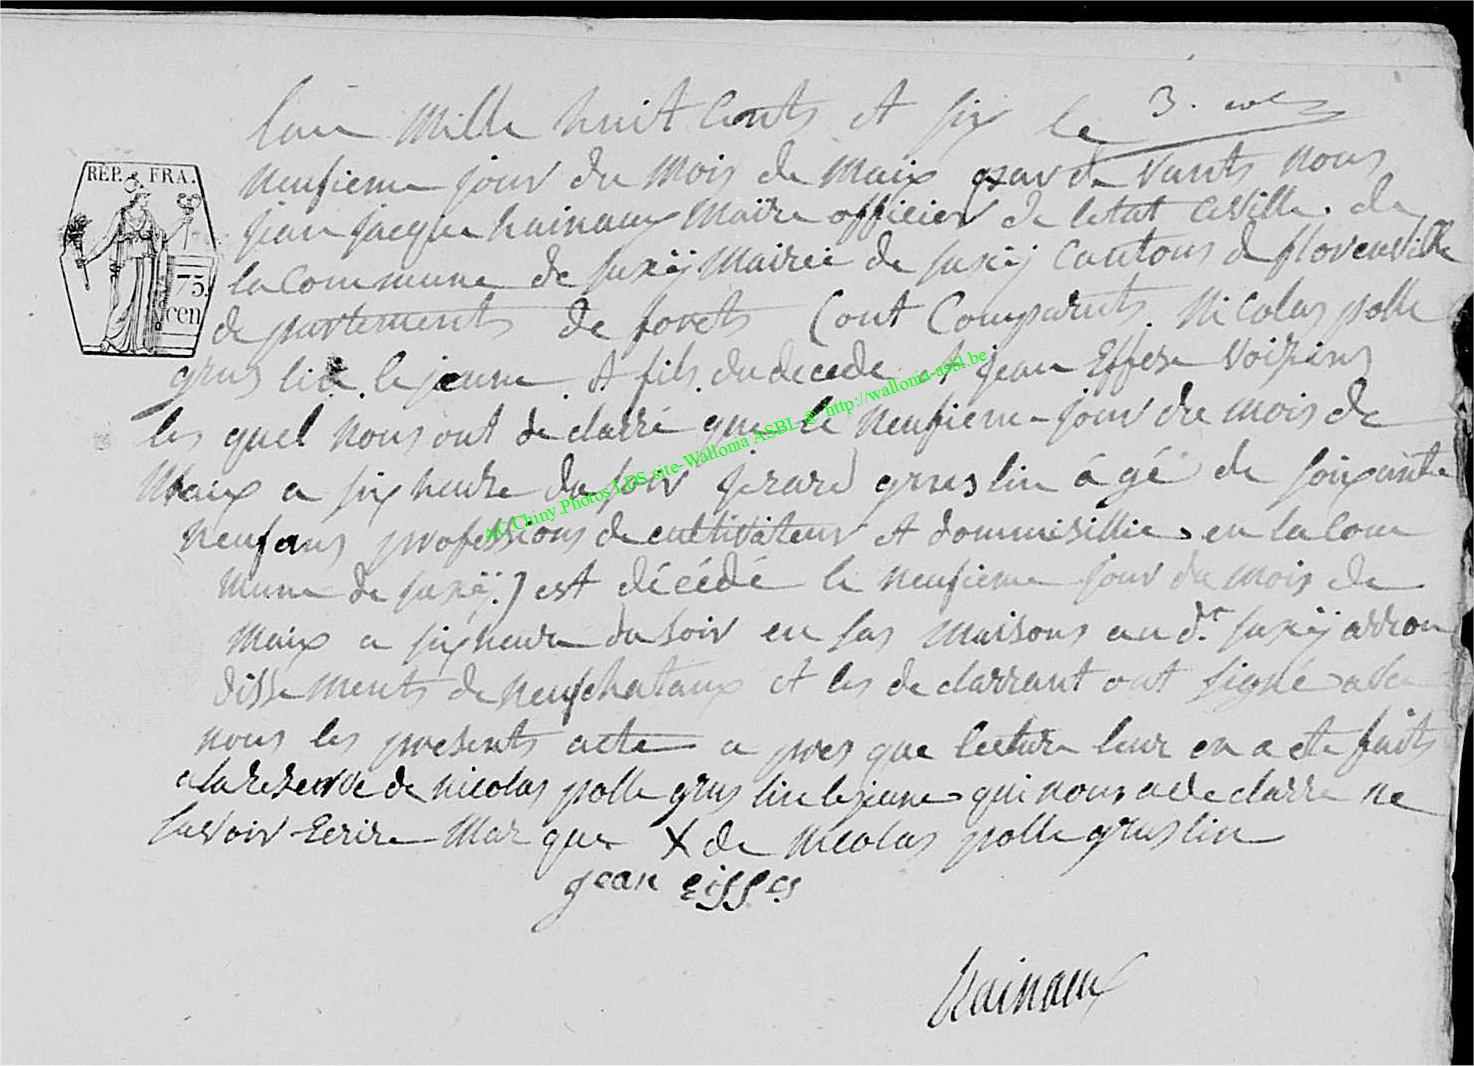 Lan mille huit Cents et six le 3. me
neufieme jour du mois de maix par de vants nous
jean jacque hainaux maire officier de letat Civille. de
la Commune de juxiÿ mairie de juxiÿ Cantons de florenville
de partements de forets Sont Comparuts Nicolas polle
grus lin le jeune A fils du decede et jean Effese voizins
les quel nous ont de clarré que le neufieme jour du mois de
Maix a six heure du soir jerard gruslin ágé de soixante
neufans professions de cultivateur et dommisillie en la Com
mune de juxiÿ. est décédé le neufieme jour du mois de
maix a six heure du soir en sas maisons au dt juxiÿ arron
disse ments de neufchataux et les de clarrant ont signé avec
nous les presents acte a pres que lecture leur en a ete faits
a la reserve de nicolas polle grus lin le jeune qui nous a de clarre ne
savoir Ecrire Mar que X de nicolas polle grus lin
jean eisses
hainaux
REP. FRA.
75.
cen
AC Chiny Photos LDS site Walloma ASBL @ http://walloma-asbl.be